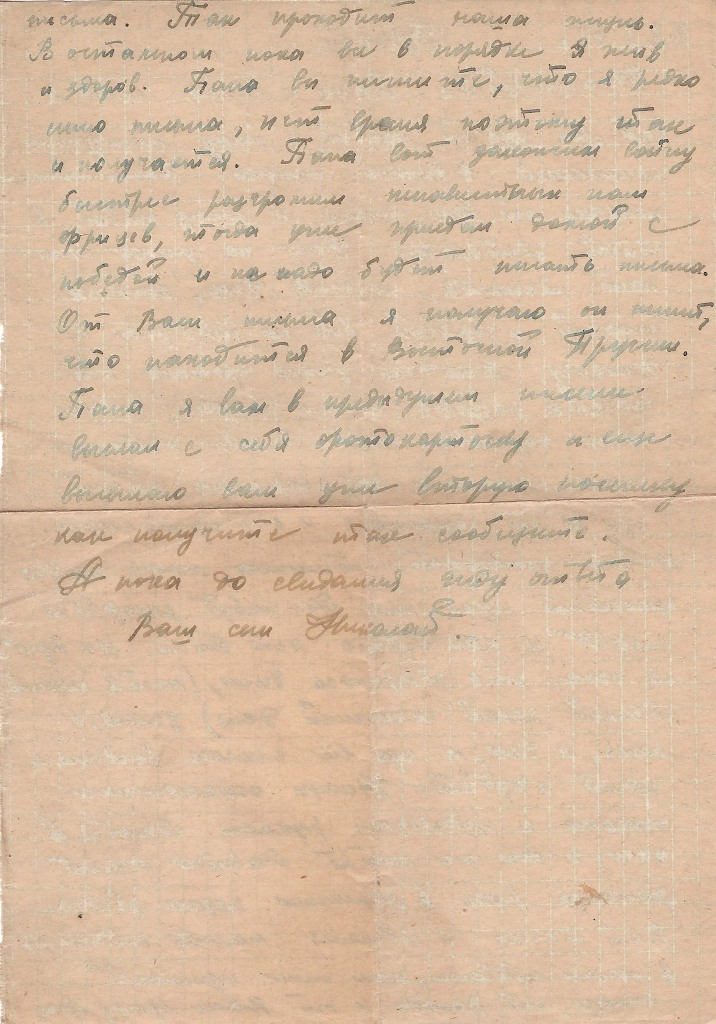 письма. Так проходит наша жизнь.
В остальном пока все в порядке я жив
и здоров. Папа вы пишите, что я редко
пишу письма, нет время поэтому так
и получается. Папа вот закончим войну
быстрее разгромим ненавистных нам
фрицев, тогда уже приедем домой с
победой и не надо будет писать письма.
От Васи письма я получаю он пишит,
что находится в Восточной Пруссии.
Папа я вам в предидущем письме
выслал с себя фотокарточку и еще
высылаю вам уже вторую посылку
как получите так сообщите.
А пока до свидания жду ответа
Ваш сын Николай.